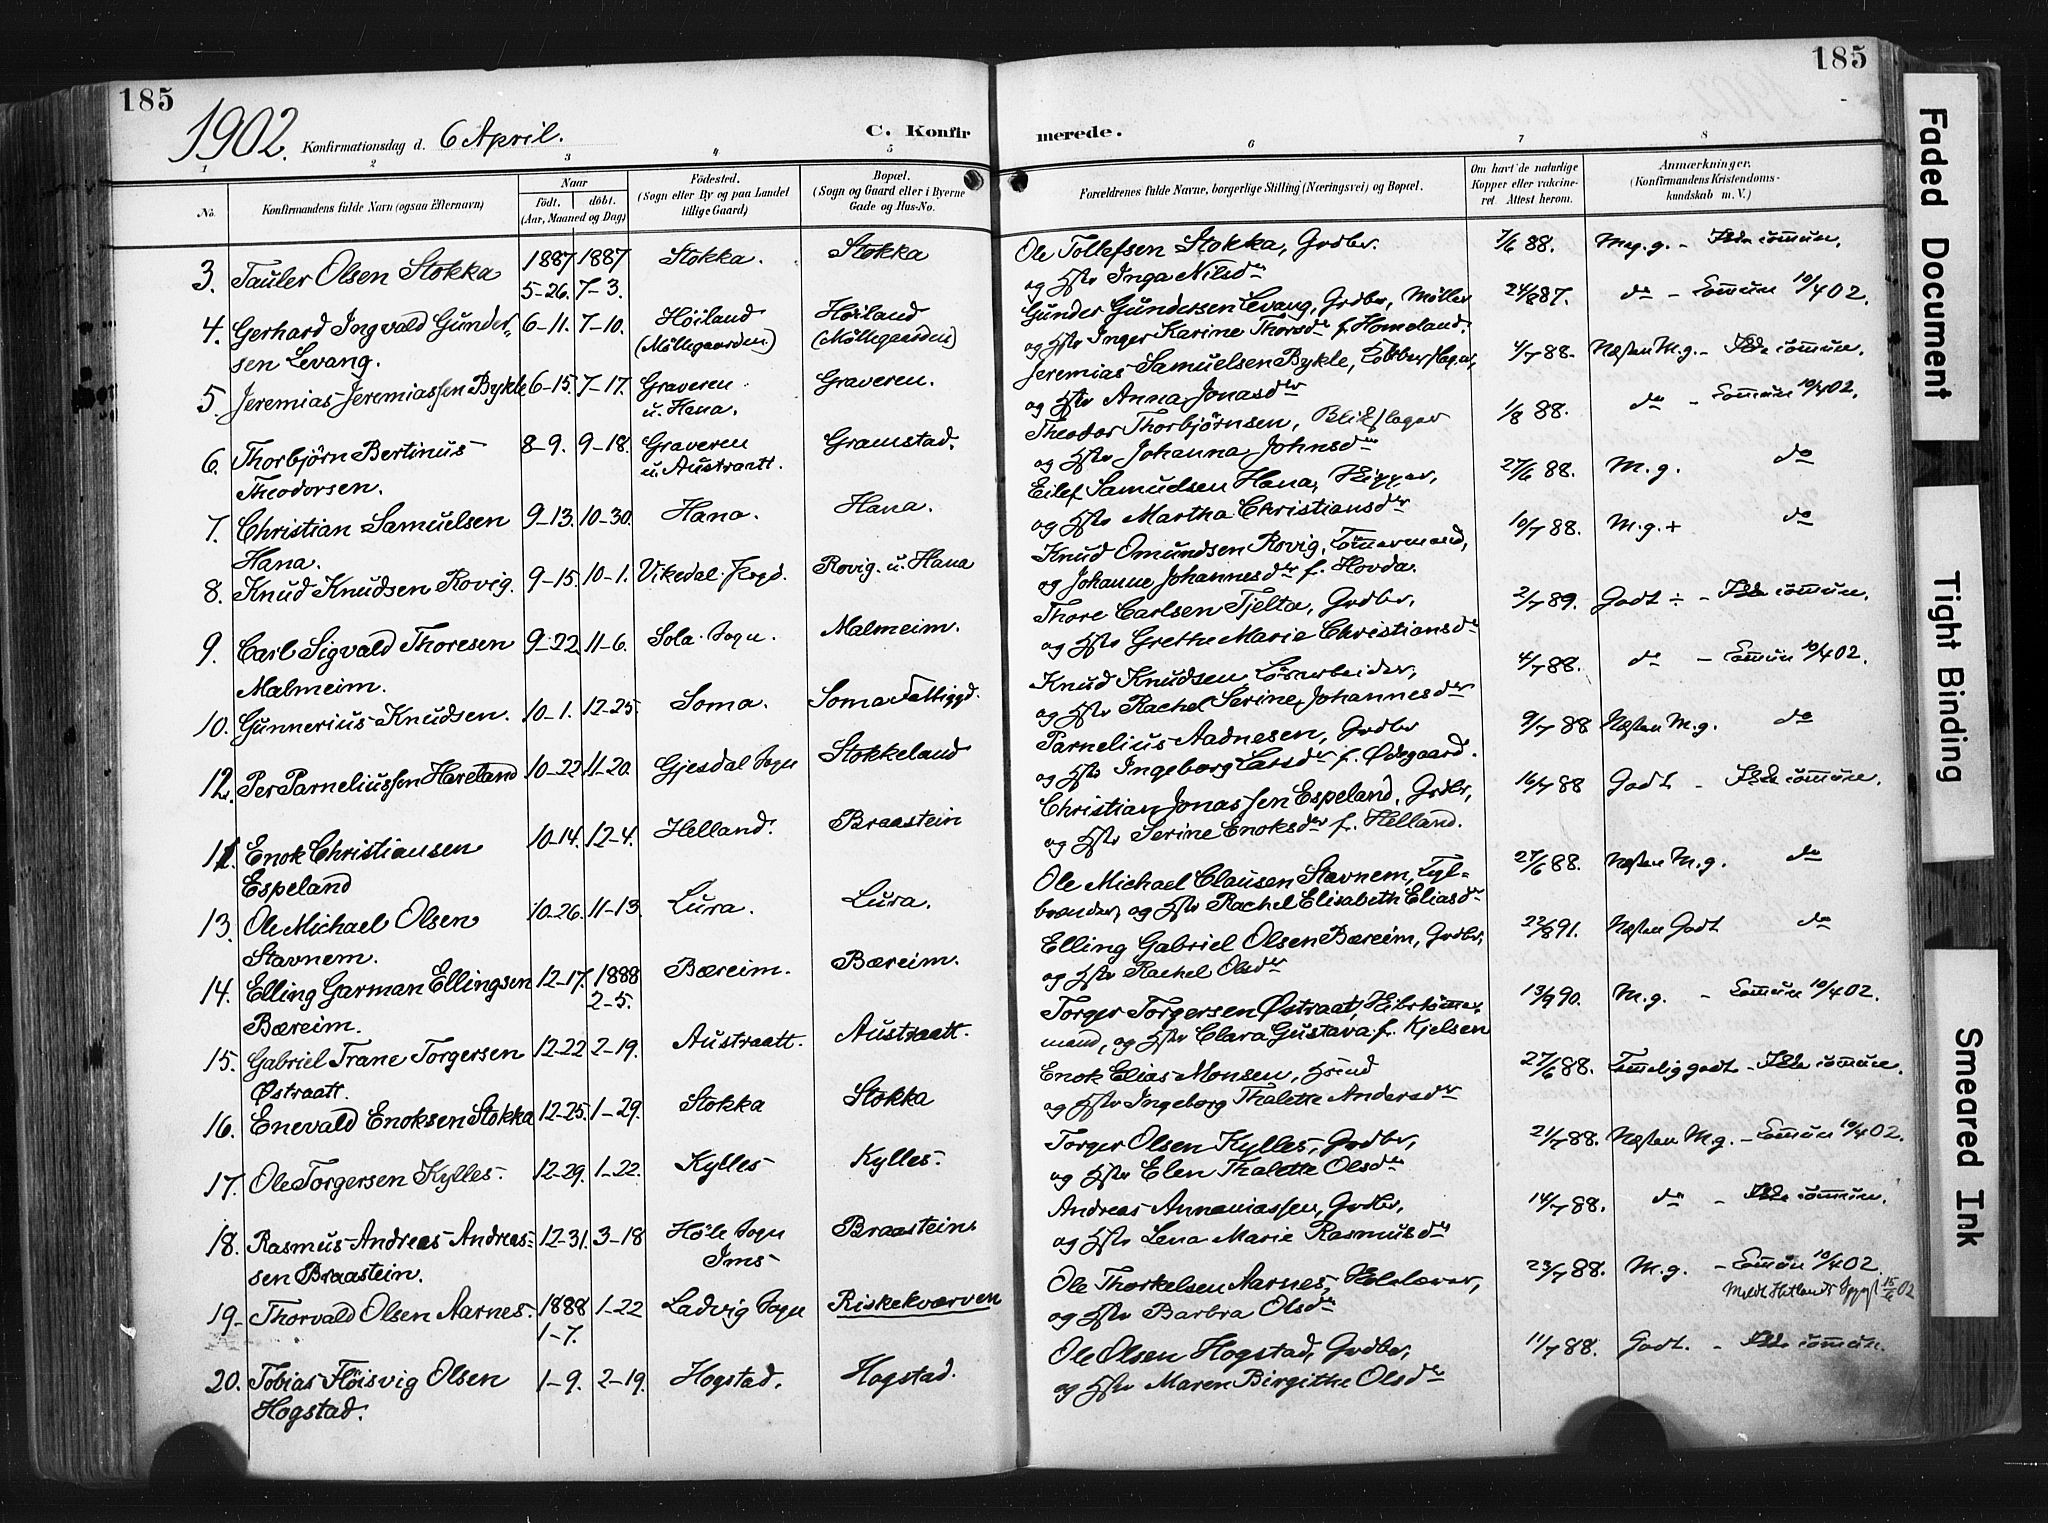 185
185
1902. Konfirmationsdag d. 6 April.
C. Konfir
merede.
1
2
3
4
5
6
7
8
No.
Konfirmandens fulde Navn (ogsaa Efternavn)
Naar
födt. döbt.
(Aar, Maaned og Dag)
Födested.
(Sogn eller By og paa Landet
tillige Gaard)
Bopæl.
(Sogn og Gaard eller i Byerne
Gade og Hus-No.
Forældrenes fulde Navne, borgerlige Stilling (Næringsvei) og Bopæl.
Om havt de naturlige
Kopper eller vakcine-
ret. Attest herom.
Anmærkninger.
(Konfirmandens Kristendoms-
kundskab m. V.)
3. Tauler Olsen Stokka 1887 5-26. 1887 7-3. Stokka. Stokka
Ole Tollefsen Stokka, Grdbr.
og Hstr Inga Nilsdr
7/6 88. M.g.
4. Gerhard Ingvald Gunder-
sen Levang. 6-11. 7-10. Höiland
(Möllegaarden) Höiland
(Möllegaarden)
Gunder Gundersen Levang, Grdbr, Møller
og Hstr Inger Karine Thorsdr f. Homeland.
24/8 87. do - Comune 10/4 02.
5. Jeremias Jeremiassen Bykle 6-15. 7-17. Graveren
u. Hana. Graveren.
Jeremias Samuelsen Bykle, Kobberslager,
og Hstr Anna Jonasdr
4/7 88. Næsten M.g.
6. Thorbjörn Bertinus
Theodorsen. 8-9. 9-18. Graveren
u. Austraatt. Gramstad.
Theodor Thorbjörnsen, Blikslager
og Hstr Johanna Johnsdr
1/8 88. do - Comune 10/4 02.
7. Christian Samuelsen
Hana. 9-13. 10-30. Hana. Hana.
Eilef Samuelsen Hana,
og Hstr Martha Christiansdr
27/6 88. M.g. do
8. Knud Knudsen Rovig. 9-15. 10-1. Vikedal Rovig. u. Hana
Knud Omundsen Rovig, Tömmermand,
og Johanne Johannesdr f. Hovda.
10/7 88. M.g.+ do
9. Carl Sigvald Thoresen
Malmeim. 9-22. 11-6. Sola Sogn. Malmeim.
Thore Carlsen Tjelta, Grdbr,
og Hstr Grethe Marie Christiansdr
2/7 89. Godt ÷
10. Gunnerius Knudsen. 10-1. 12-25. Soma. Soma Fattiggd.
Knud Knudsen, Lösarbeider,
og Hstr Rachel Serine Johannesdr
4/7 88. do - Comune 10/4 02.
12. Per Parneliussen Haveland 10-22. 11-20. Gjesdal Sogn Stokkeland
Parnelius Aadnesen, Grdbr
og Hstr Ingeborg Larsdr f. Ødegaard.
9/7 88 Næsten M.g. do
11. Enok Christiansen
Espeland 10-14. 12-4. Helland. Braastein
Christian Jonassen Espeland, Grdbr,
og Hstr Serine Enoksdr f. Helland.
16/7 88 Godt
13. Ole Michael Olsen
Stavnem. 10-26. 11-13. Lura. Lura.
Ole Michael Clausen Stavnem, Tegl-
brænder, og Hstr Rachel Elisabeth Eliasdr
27/6 88. Næsten M.g. do
14. Elling Garman Ellingsen
Bæreim. 12-17. 1888
2-5. Bæreim. Bæreim.
Elling Gabriel Olsen Bæreim, Grdbr,
og Hstr Rachel Olsdr
22/8 91. Næsten Godt do
15. Gabriel Trane Torgersen
Østraatt. 12-22 2-19. Austraatt. Austraatt.
Torger Torgersen Østraat, Hustömmer-
mand, og Hstr Clara Gustava f. Kjelsen
13/9 90. M.g. - Comune 10/4 02.
16. Enevald Enoksen Stokka 12-25. 1-29. Stokka Stokka
Enok Elias Monsen,
og Hstr Ingeborg Thalette Andersdr
27/6 88. Temmelig godt
17. Ole Torgersen Kylles. 12-29. 1-22. Kylles Kylles.
Torger Olsen Kylles, Grdbr,
og Hstr Elen Thalette Olsdr
21/7 88. Næsten M.g. - Comune 10/4 02.
18. Rasmus Andreas Andreas-
sen Braastein. 12-31. 3-18 Höle Sogn
Ims Braastein
Andreas Annaniassen, Grdbr,
og Hstr Lena Marie Rasmusdr
14/7 88. do
19. Thorvald Olsen Aarnes. 1888
1-7. 1-22 Ladvig Sogn Riskekværven
Ole Thorkelsen Aarnes,
og Hstr Barbra Olsdr
23/7 88. M.g. - Comune 10/4 02.
20. Tobias Höisvig Olsen
Hogstad. 1-9. 2-19. Hogstad. Hogstad.
Ole Olsen Hogstad, Grdbr,
og Hstr Maren Birgithe Olsdr
11/7 88. Godt.
Faded Document
Tight Binding
Smeared Ink